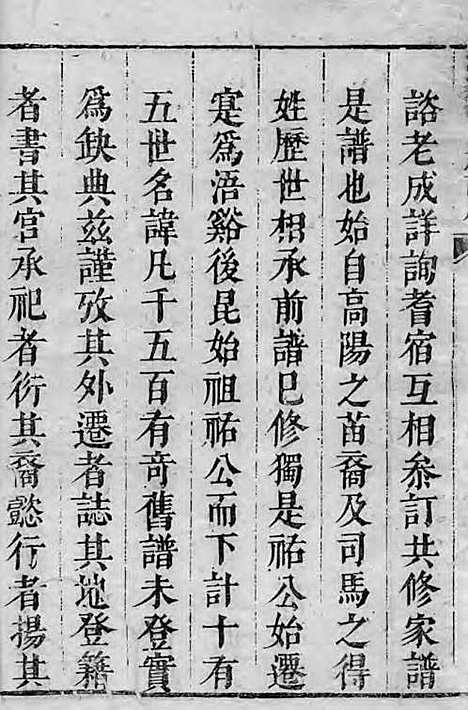 諮老成詳詢耆宿互相叅訂共修家譜
是譜也始自高陽之苗裔及司馬之得
姓歷世相承前譜已修獨是祐公始遷
寔爲浯谿後昆始祖祐公而下計十有
五世名諱凡千五百有竒舊譜未登實
爲缺典茲謹攷其外遷者誌其地登籍
者書其官承祀者衍其裔懿行者揚其